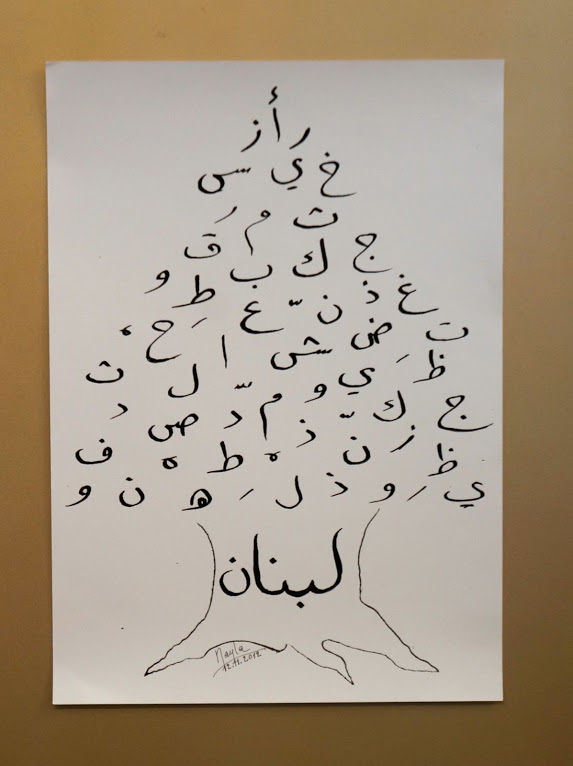 ر أ ز
خ ي س
ث م ق
ج ك ب و
غ ذ ن ع ط
ت ض ش ا ح
ظ ي و ل ث
ج ك م د ص د
ز ن ذ ط ف
ي ظ و ذ ل ه ن و
لبنان
Nayla
12.12.2012